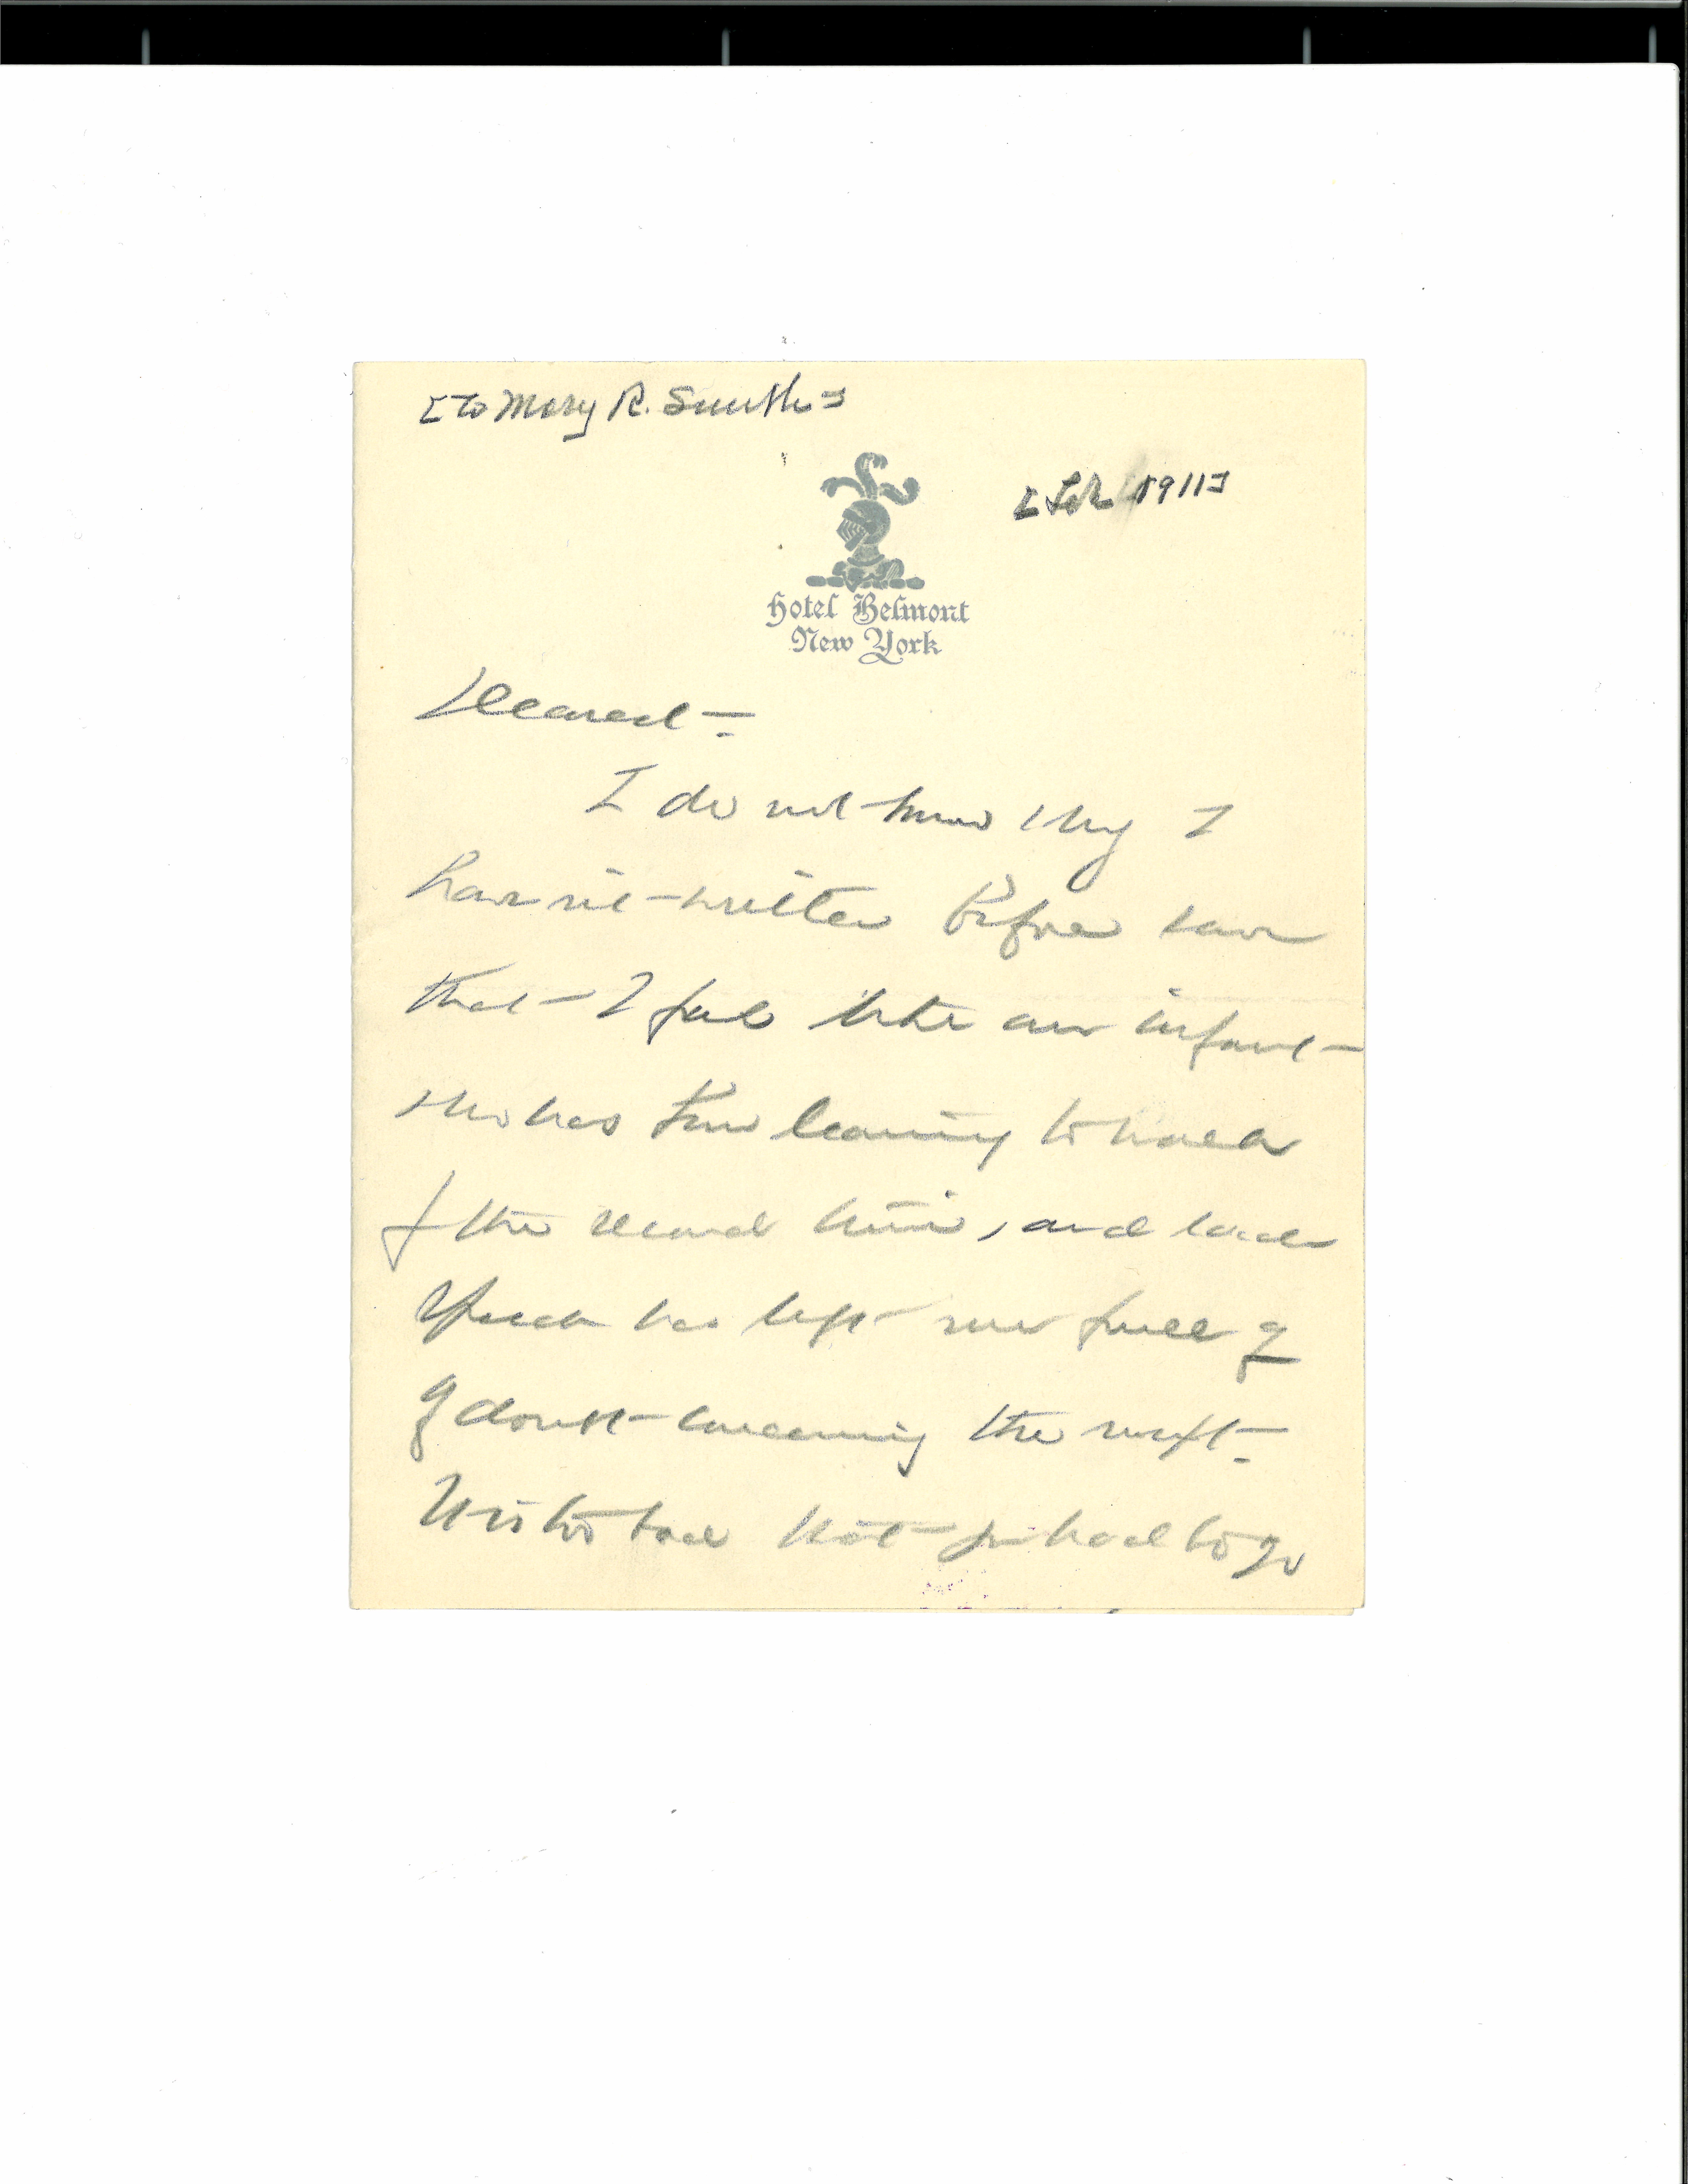 [to Mary R. Smith]
[Feb 1911]
Hotel Belmont
New York
Dearest —
I do not know why I
have not written before save
that I feel like an infant
who has been learning to walk
for the second time, and each
speech has left me full of
of doubt concerning the next.
It is too bad that you had to go